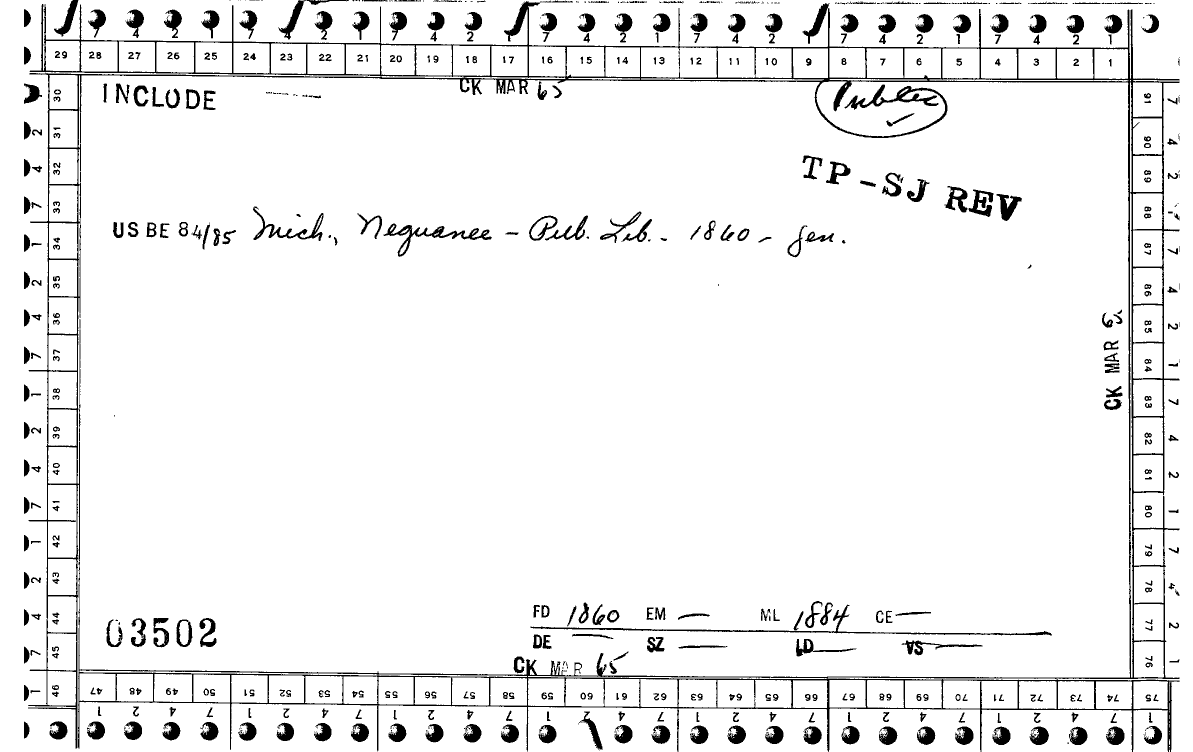 7 4 2 1 7 4 2 1 7 4 2 1 7 4 2 1 7 4 2 1 7 4 2 1 7 4 2 1
29 28 27 26 25 24 23 22 21 20 19 18 17 16 15 14 13 12 11 10 9 8 7 6 5 4 3 2 1
INCLUDE
CK MAR 65
Public
TP-SJ REV
US BE 84/85 Mich., Neguanee - Pub. Lib. - 1860 - Gen.
CK MAR 6
FD 1860 EM — ML 1884 CE —
DE — SZ — LD — VS —
CK MAR 65
03502
30 31 32 33 34 35 36 37 38 39 40 41 42 43 44 45 46
91 90 89 88 87 86 85 84 83 82 81 80 79 78 77 76
47 48 49 50 51 52 53 54 55 56 57 58 59 60 61 62 63 64 65 66 67 68 69 70 71 72 73 74 75